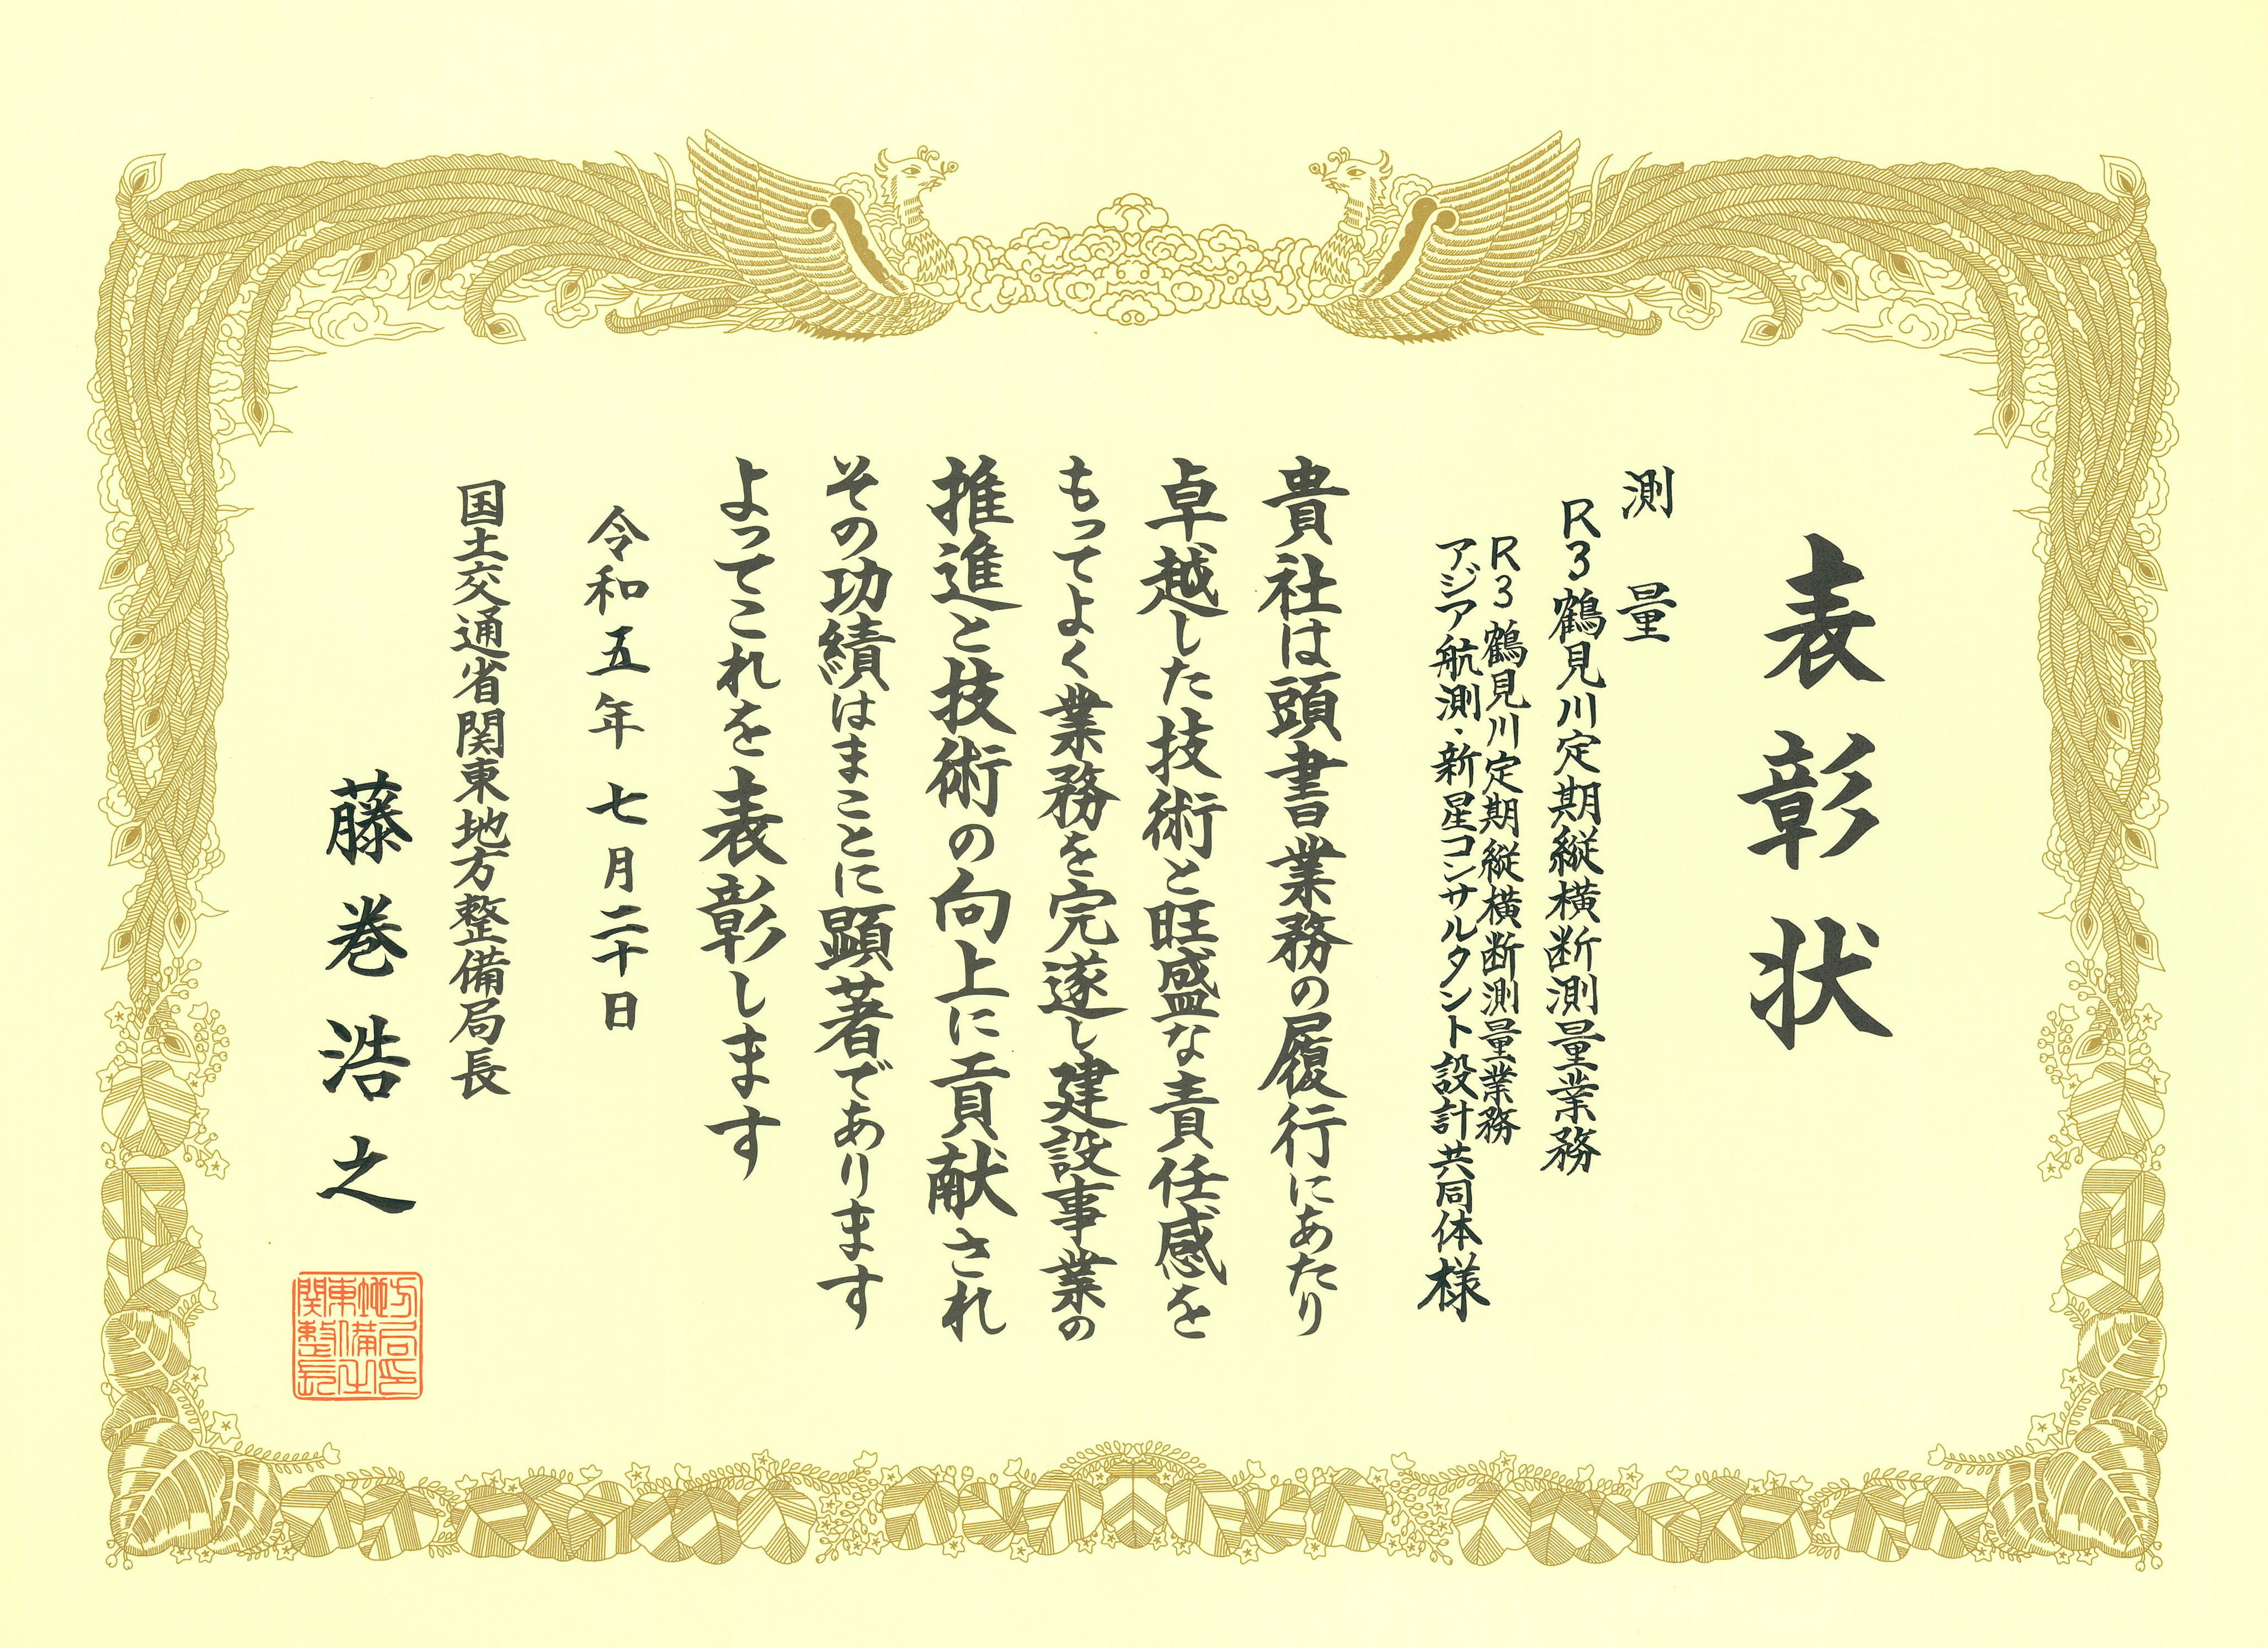 表彰状
測量
R3鶴見川定期縦横断測量業務
R3鶴見川定期縦横断測量業務
アジア航測・新星コンサルタント設計共同体様
貴社は頭書業務の履行にあたり
卓越した技術と旺盛な責任感を
もってよく業務を完遂し建設事業の
推進と技術の向上に貢献され
その功績はまことに顕著であります
よってこれを表彰します
令和五年七月二十日
国土交通省関東地方整備局長
藤巻浩之
関東地方整備局長之印